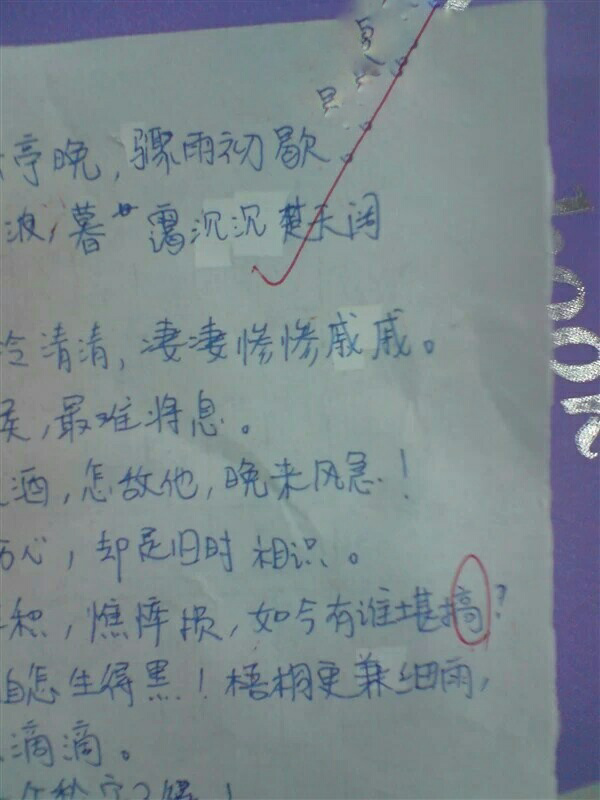 亭晚，骤雨初歇
波，暮霭沉沉楚天阔
冷清清，凄凄惨惨戚戚。
，最难将息。
酒，怎故他，晚来风急！
心，却是旧时相识。
积，憔悴损，如今有谁堪搞？
自怎生得黑！梧桐更兼细雨，
滴滴。